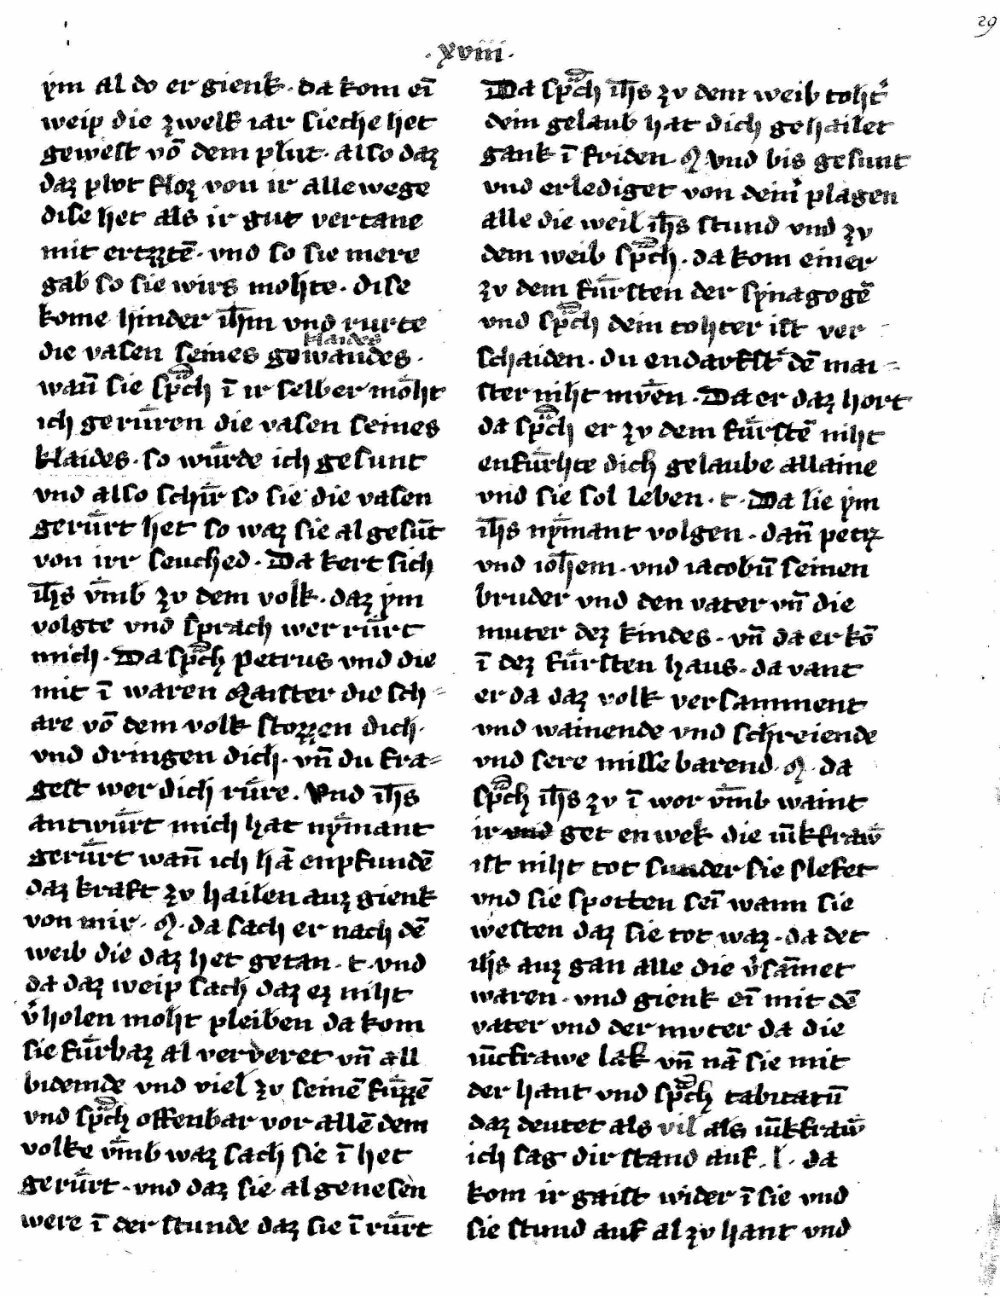 29
·xviii·
ẏm al do er gienk · da kom eī
weip die zwelf iar sieche het
gewest vō dem plut · also daz
daz plvt floz von ir alle wege
dise het als ir gut vertane
mit ertzztē · vnd so sie mere
gab so sie wirs mohte · dise
kome hinder ih̄m vnd rurte
klaides
die vasen seines gewandes ·
wan̄ sie sp̄ch ī ir selber mo̍ht
ich geru̍ren die vasen seines
klaides · so wu̍rde ich gesunt
vnd also schir̄ so sie die vasen
geru̍rt het so waz sie al gesūt
von irr seuched · Da kert sich
ih̄s v̄mb zv dem volk · daz ẏm
volgte vnd sprach wer ru̍rt
mich · Da sp̄ch petrus vnd die
mit ī waren Maister die sch=
are vō dem volk stozzen dich ·
vnd dringen dich · vn̄ du fra=
gest wer dich ru̍re . Vnd ih̄s
antwu̍rt mich hat nẏmant
geru̍rt wan̄ ich hā enpfundē
daz kraft zv hailen auz gienk
von mir · M · da sach er nach dē
weib die daz het getan · t · vnd
da daz weip sach daz ez niht
v̍holen moht pleiben da kom
sie fu̍rbaz al verderet vn̄ all
bidemde vnd viel zv seinē fu̍zzē
vnd sp̄ch offenbar vor allē dem
volke v̄mb waz sach sie ī het
geru̍rt · vnd daz sie al genesen
were ī der stunde daz sie ī ru̍rt
Da sp̄ch ih̄s zv dem weib toht̍
dein gelaub hat dich gehailet
gank ī friden · M Vnd bis gesunt
vnd erlediget von dein̍ plagen
alle die weil ih̄s stund vnd zv
dem weib sp̄ch · da kom einer
zv dem fu̍rsten der sẏnagogē
vnd sp̄ch dein tohter ist ver
schaiden · du endarfst̍ dē mai=
ster niht mv̍en · Da er daz hort
da sp̄ch er zv dem fu̍rstē niht
enfu̍rhte dich gelaube allaine
vnd sie sol leben · t · Da lie ẏm
ih̄s nẏmant volgen · dan̄ petrz
vnd ioh̄em · vnd iacobū seinen
bruder vnd den vater vn̄ die
muter dez kindes · vn̄ da er kō
ī dez fu̍rsten haus · da vant
er da daz volk versamment
vnd wainende vnd schreiende
vnd sere misse barend · M · da
sp̄ch ih̄s zv ī wor v̄mb waint
ir vnd get en wek die iūkfraw̄
ist niht tot sunder sie slefet
vnd sie spotten sei̅ wann sie
westen daz sie tot waz · da det
ih̄s auz gan alle die v̍sām̄et
waren · vnd gienk eī mit dē
vater vnd der mvter da die
iūcfrawe lak vn̄ nā sie mit
der hant vnd sp̄ch tabitatū
daz deutet als vil als iūkfraw̄
ich sag dir stand auf · l · da
kom ir gaist wider ī sie vnd
sie stund auf al zv hant vnd